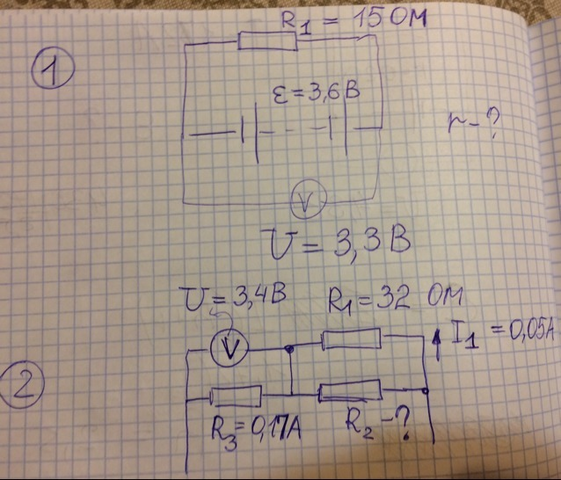 R₁ = 15 Ом
①
ε = 3,6 В
r - ?
V
U = 3,3 В
U = 3,4 В
R₁ = 32 Ом
I₁ = 0,05А
V
②
R₃ = 0,17А
R₂ - ?